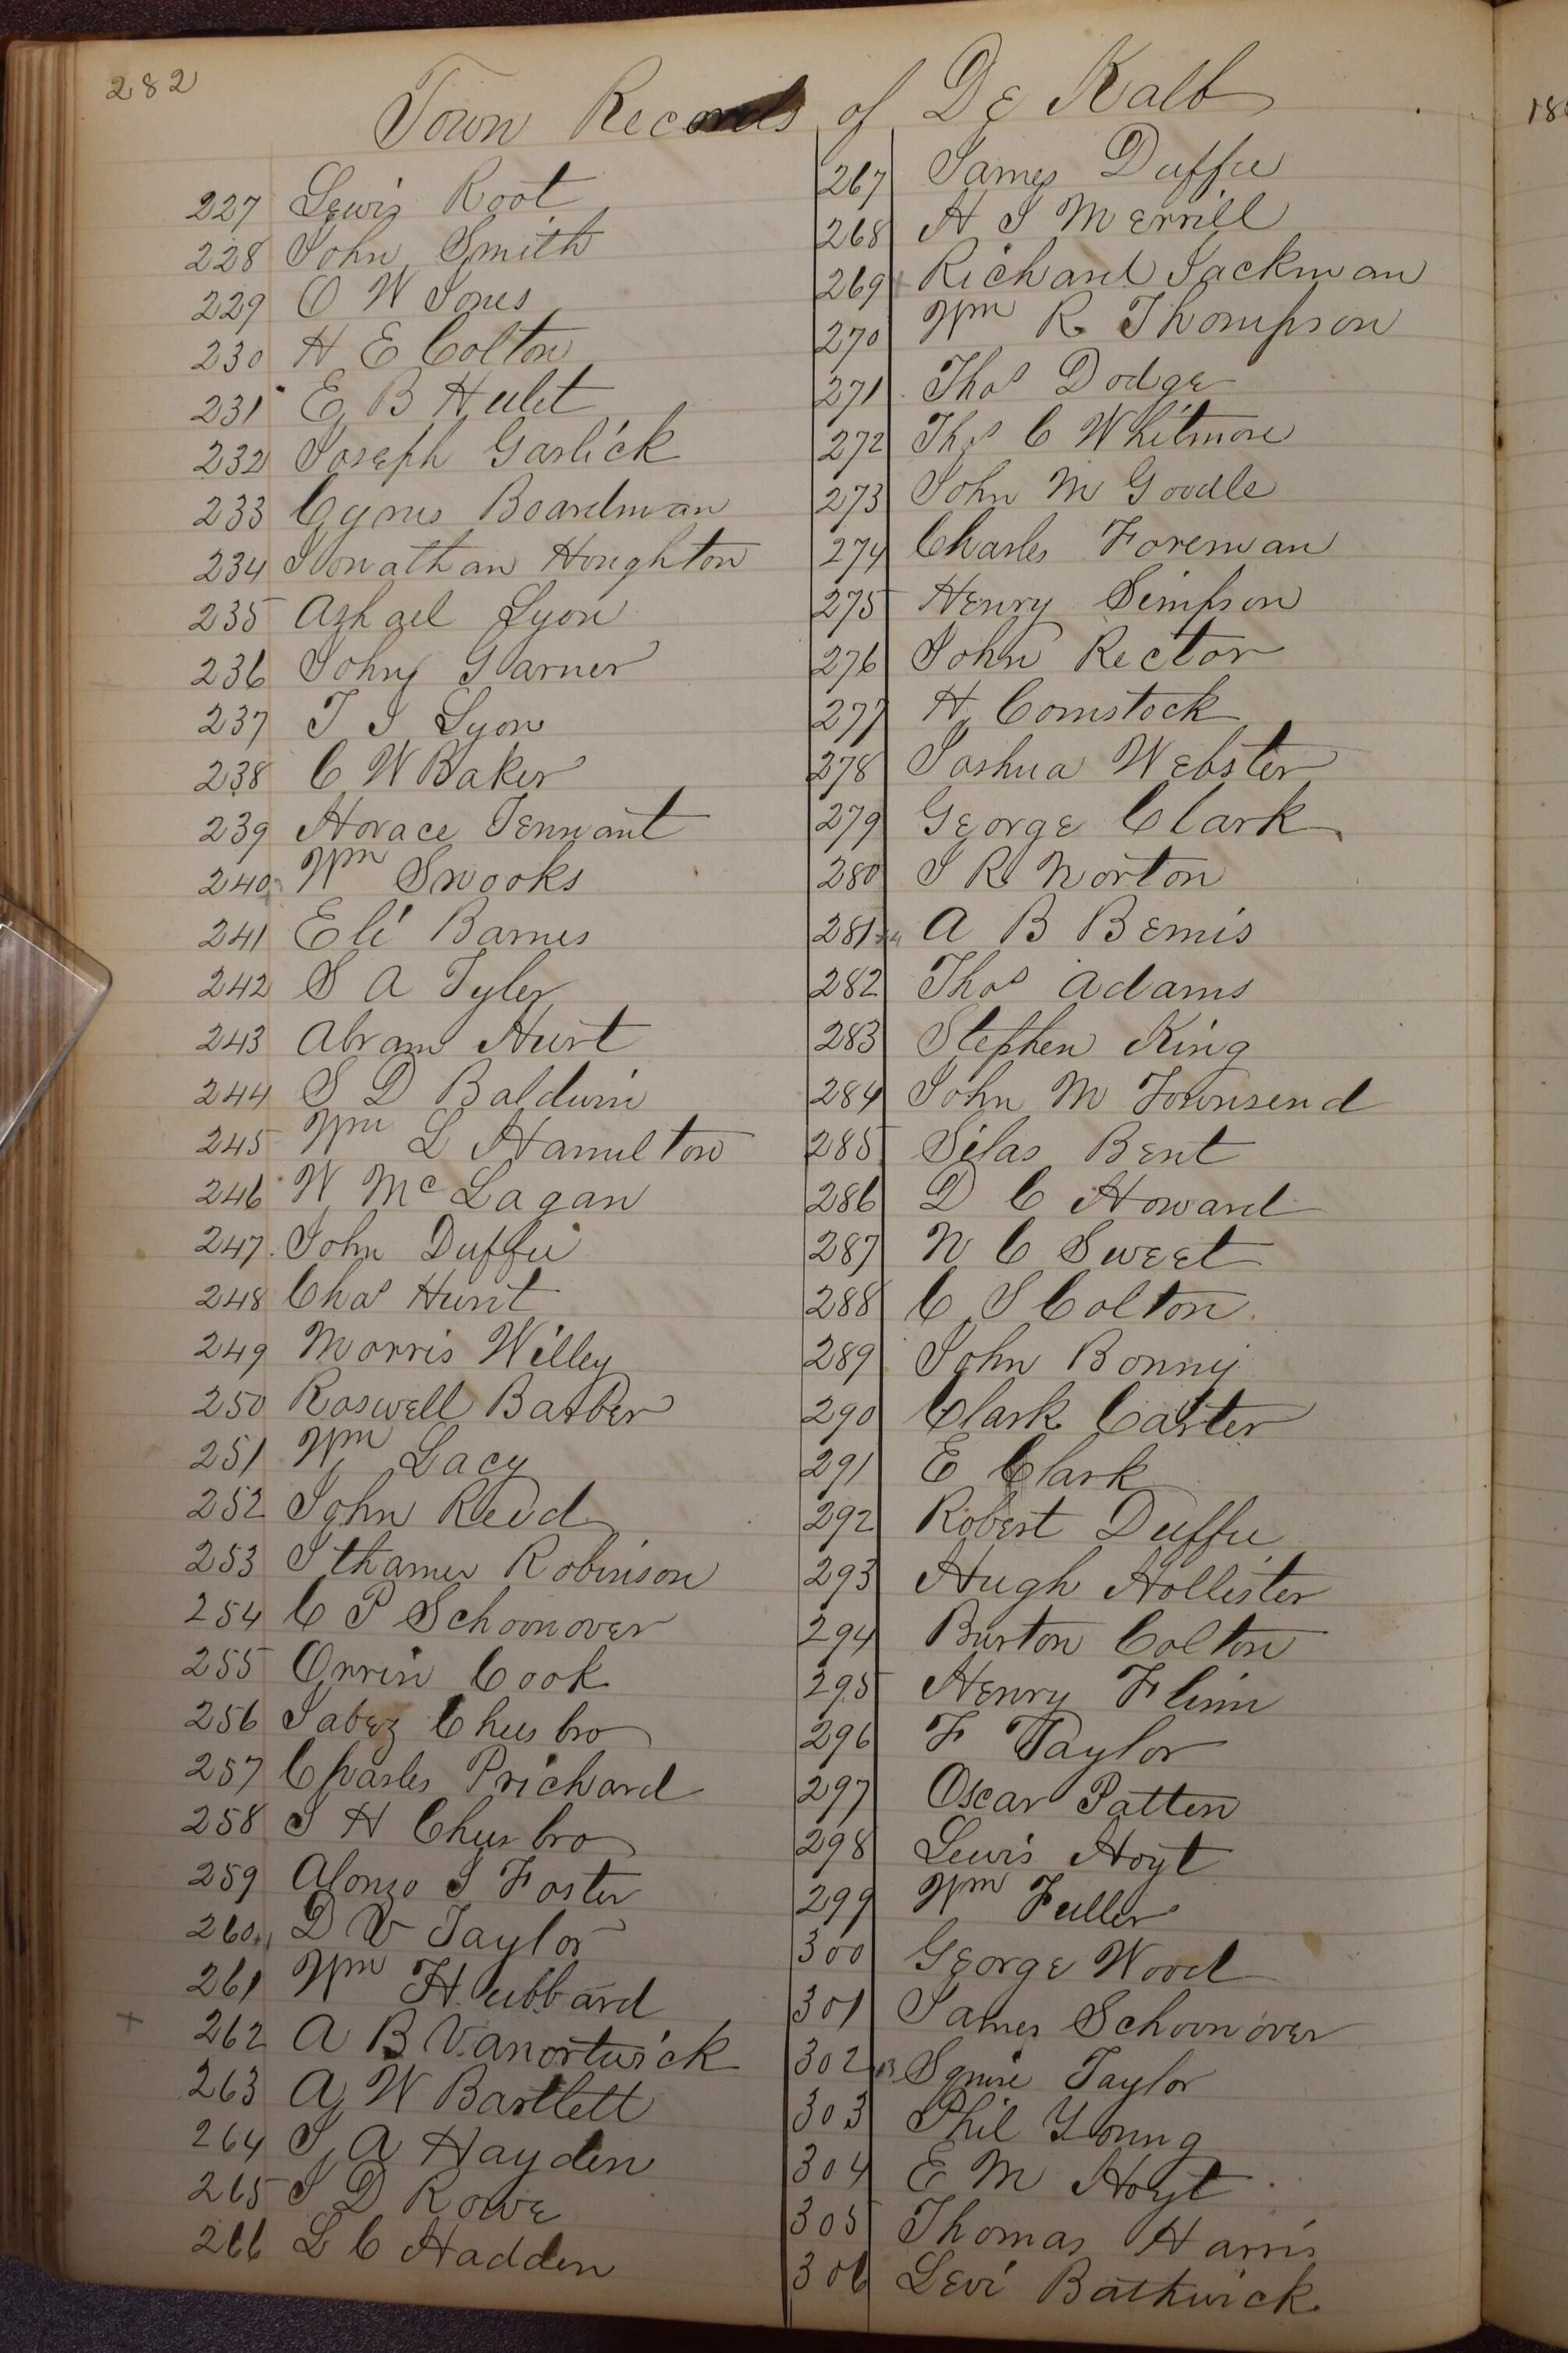 282
Town Records of De Kalb
227 Lewis Root
228 John Smith
229 O W Jones
230 H E Colton
231 E B Hulet
232 Joseph Garlick
233 Cyrus Boardman
234 Jonathan Houghton
235 Ashael Lyon
236 John Garner
237 T J Lyon
238 C W Baker
239 Horace Tennant
240 Wm Snooks
241 Eli Barnes
242 S A Tyler
243 Abram Hurt
244 S D Baldwin
245 Wm L Hamilton
246 W McLagan
247 John Duffie
248 Chas Hunt
249 Morris Willey
250 Roswell Barber
251 Wm Lacy
252 John Reed
253 Ithamer Robinson
254 C P Schoonover
255 Orrin Cook
256 Jabez Cheesbro
257 Charles Prichard
258 J H Cheesbro
259 Alonzo J Foster
260 D V Taylor
261 Wm Hubbard
262 A B Vanortwick
263 A W Bartlett
264 J A Hayden
265 J D Rowe
266 L C Hadden
267 James Duffee
268 H J Merrill
269 Richard Jackman
270 Wm R Thompson
271 Thos Dodge
272 Thos C Whitmore
273 John M Goodle
274 Charles Foreman
275 Henry Simpson
276 John Rector
277 H Comstock
278 Joshua Webster
279 George Clark
280 J R Norton
281 A B Bemis
282 Thos Adams
283 Stephen King
284 John M Townsend
285 Silas Bent
286 D C Howard
287 N C Sweet
288 C S Colton
289 John Bonny
290 Clark Carter
291 E Clark
292 Robert Duffee
293 Hugh Hollister
294 Burton Colton
295 Henry Flinn
296 F Taylor
297 Oscar Patten
298 Lewis Hoyt
299 Wm Fuller
300 George Wood
301 James Schoonover
302 Squire Taylor
303 Phil Young
304 E M Hoyt
305 Thomas Harris
306 Levi Bathrick